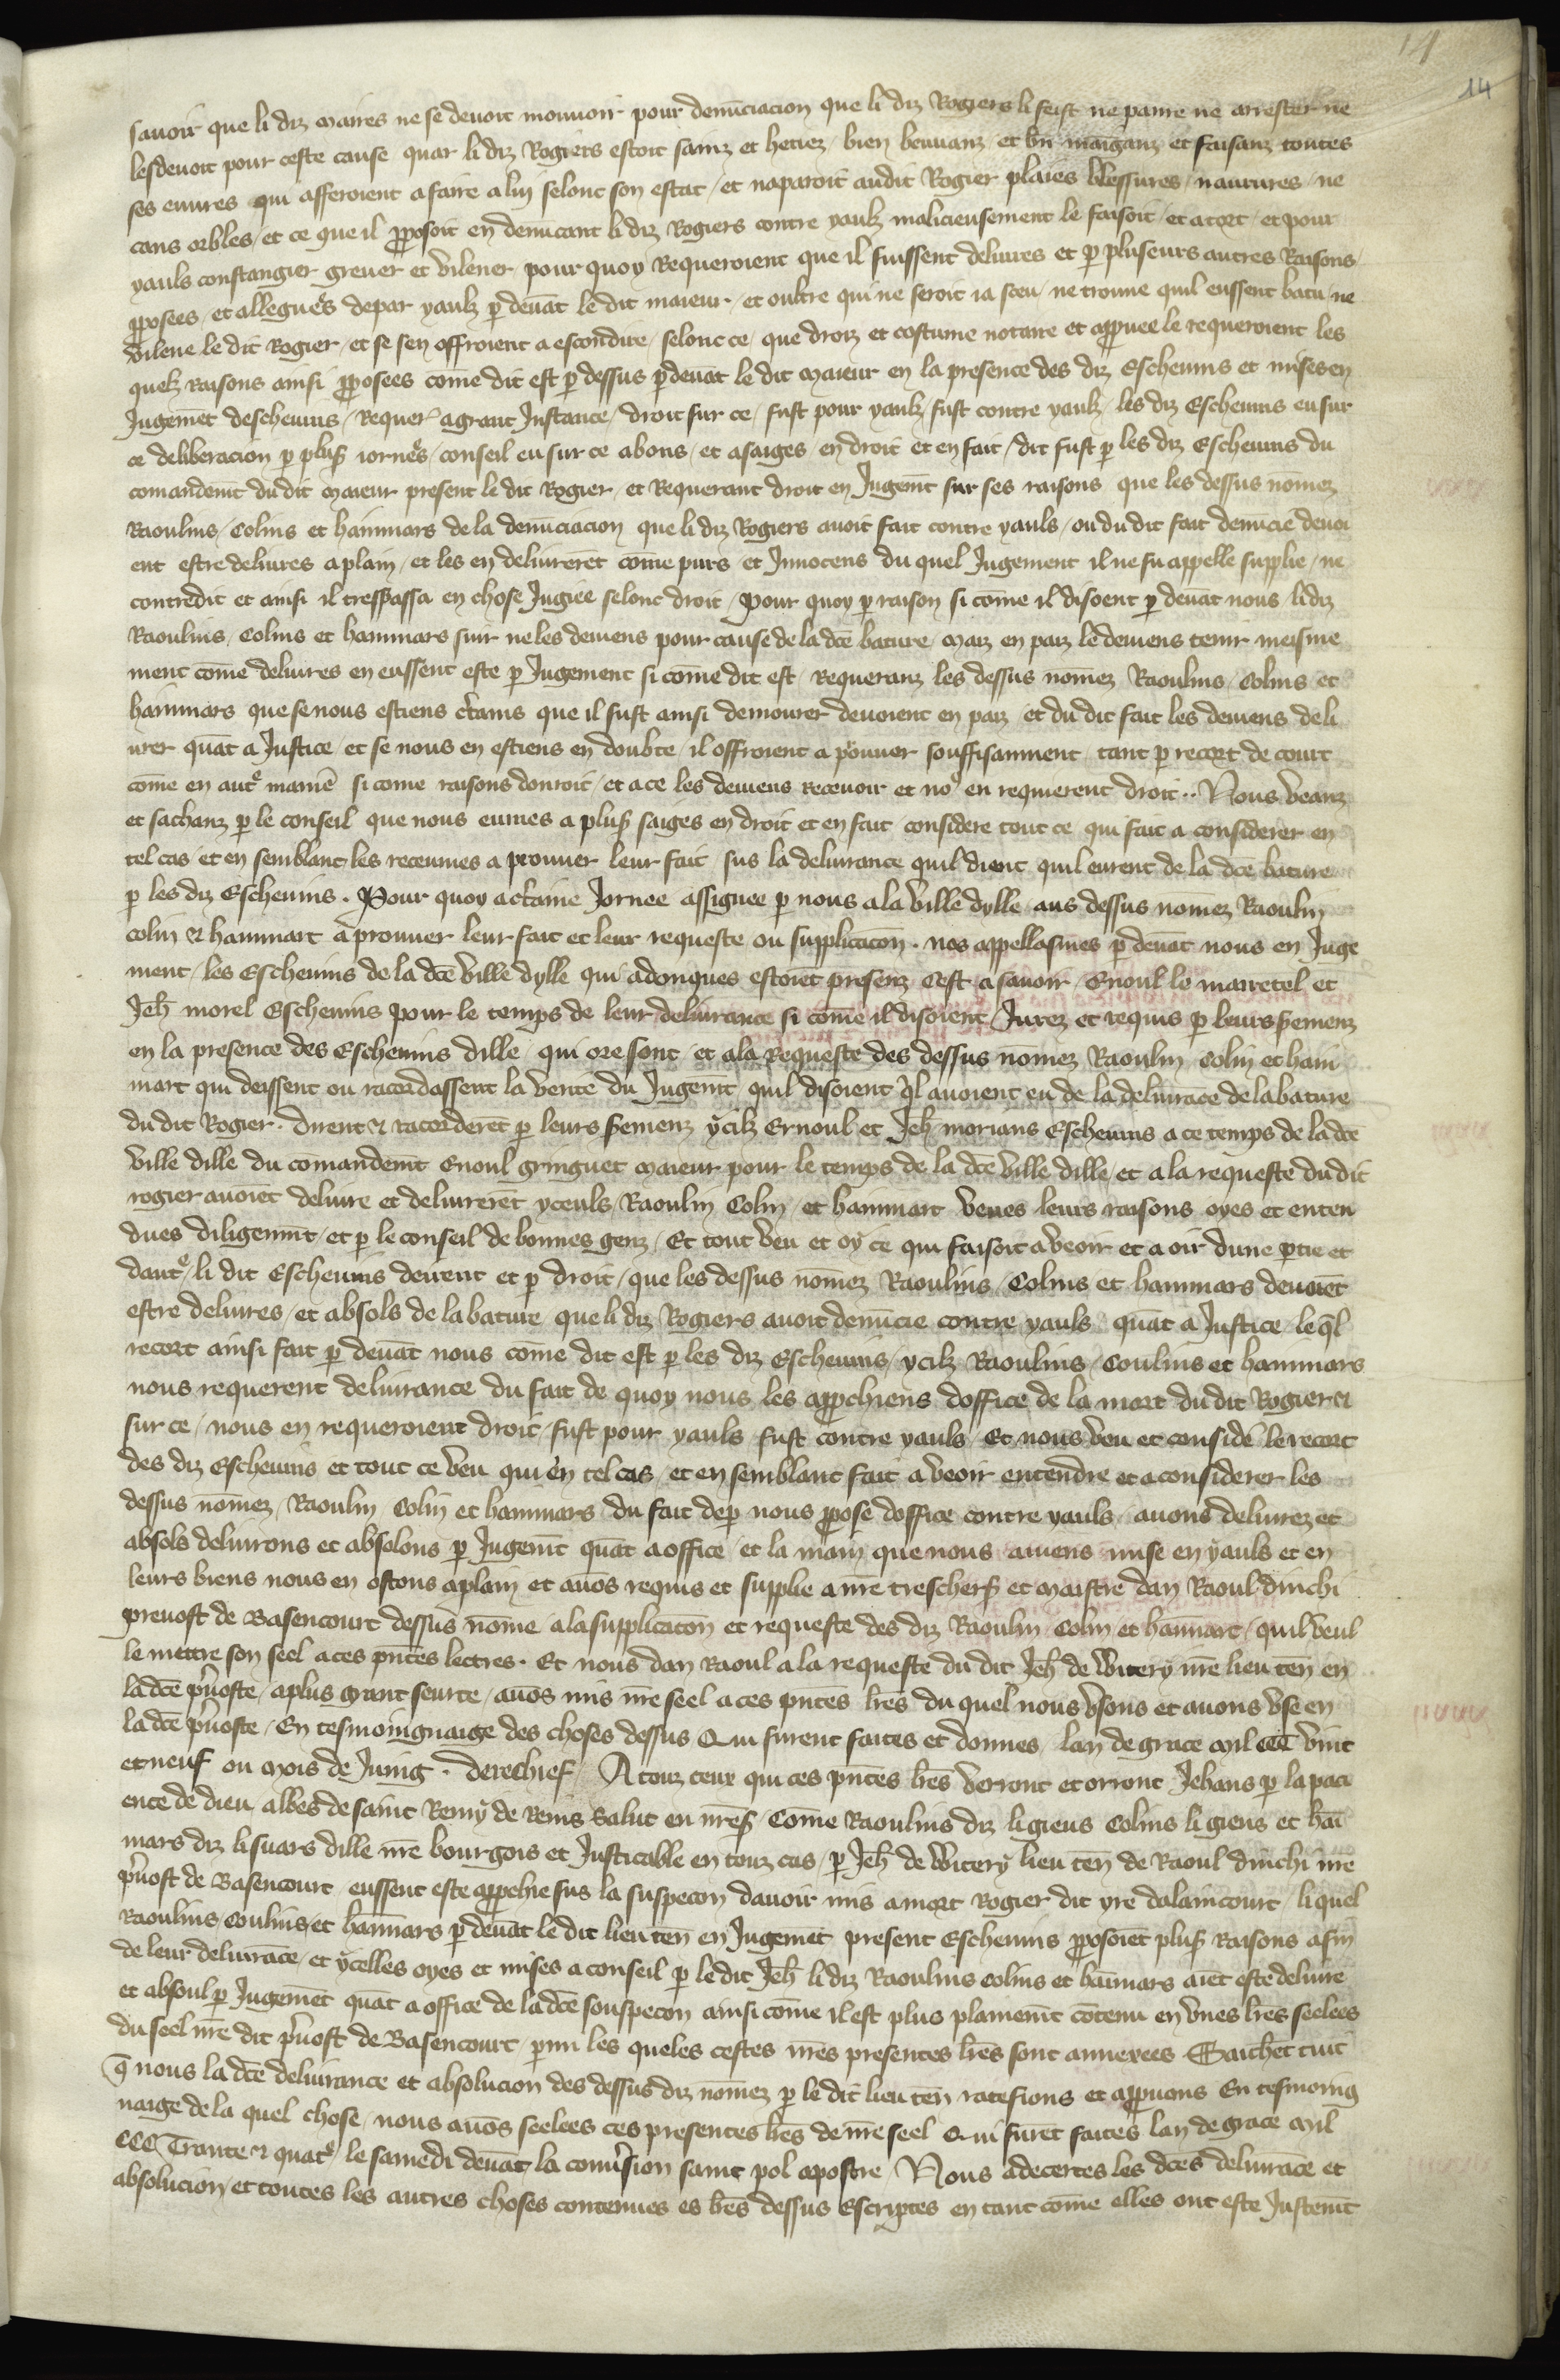 14
14
savoir que li diz maires ne se devoit mouvoir pour denūciacion que li diz Rogiers li feist ne panre ne arrester ne
les devoit pour ceste cause quar li diz Rogiers estoit sainz et hetiez bien bevvanz et bn̄ maīganz et faisanz toutes
ses euvres qui afferoient a faire a lui selonc son estat et naparoit audit Rogier plaies blessures navrures ne
caus orbles et ce que il ꝓposoit en denūcant li diz Rogiers contre yaulz malicieusement le faisoit et a tort et pour
yauls constangier grever et vilener pour quoy Requeroient que il fuissent delivres et ꝑ pluseurs autres Raisons
ꝓposees et alleguēs depar yaulz ꝑ devāt le dit maieur et oultre qui ne seroit ia sceu ne trouve quil eussent batu ne
vilene le dit Rogier et se sen offroient a escondire selonc ce que droiz et costume notaire et apꝓuvee le requeroient les
quelz raisons ainsi ꝓposees cōme dit est ꝑ dessus ꝑ devāt le dit maieur en la presence des diz Eschevins et mises en
Jugemēt deschevins Requer̄ a grant Instance droit sur ce fust pour yaulz fust contre yaulz les diz Eschevins eu sur
ce deliberacion ꝑ plus̄ iornēs conseil eu sur ce a bons et a saiges en droit et en fait dit fust ꝑ les diz Eschevins du
comandem̄t du dit maieur present le dit Rogier et Requerant droit en Jugem̄t sur ses raisons que les dessus nōmez
Raoulins Colins et hanmars de la denūciacion que li diz Rogiers avoit fait contre yauls ou du dit fait denūcie devoi
ent estre delivres a plain et les en delivrerēt cōme purs et Innocens du quel Jugement il ne fu appelle supplie ne
contredit et ainsi il trespassa en chose Jugiee selonc droit Pour quoy ꝑ raison si cōme il disoent ꝑ devāt nous li diz
Raoulins Colins et hanmars suir ne les deviens pour cause de la dc̄e bature maiz en paiz le deviens tenir meisme
ment cōme delivres en eussent este ꝑ Jugement si cōme dit est requeranz les dessus nōmez Raoulins Colins et
hanmars que se nous estiens c̄tains que il fust ainsi demourer devoient en paiz et du dit fait les deviens deli
vrer quāt a Justice et se nous en estiens en doubte il offroient a pouver souffisanment tant ꝑ recort de court
cōme en autr̄ manier̄ si come raisons donroit et a ce les deviens recevoir et nꝰ en requierent droit .. Nous veanz
et sachanz ꝑ le conseil que nous eumes a plus̄ saiges en droit et en fait considere tout ce qui fait a considerer en
tel cas et en semblant les receumes a prouver leur fait sus la delivrance quil dient quil eurent de la dc̄e bature
ꝑ les diz Eschevins . Pour quoy a c̄taine Jornee assignee ꝑ nous a la ville dylle aus dessus nōmez Raoulin
Colin & hanmart a prouver leur fait et leur requeste ou supplicacōn . nos appellasmes ꝑ devāt nous en Juge
ment les Eschevins de la dc̄e ville dylle qui adonques estoiēt presenz Cest a savoir Enoul lo mairetel et
Jeh̄ morel Eschevins pour le temps de leur delivrance si cōme il disoient Jurez et requis ꝑ leurs s̄emenz
en la presence des Eschevins dille qui ore sont et a la requeste des dessus nōmez Raoulin Colin et han
mart qui deissent ou racordassent la verite du Jugem̄t quil disoient q̄l avoient eu de la delivrāce de la bature
du dit Rogier . dirent & racorderēt ꝑ leurs s̄emenz ycilz Ernoul et Jeh̄ morians Eschevins a ce temps de la dc̄e
ville dille du comandem̄t Enoul gringuet maieur pour le temps de la dc̄e ville dille et a la requeste du dit
rogier avoiēt delivre et delivrerēt yceuls Raoulin Colin et hanmart veues leurs raisons oyes et enten
dues diligenm̄t et ꝑ le conseil de bonnes genz Et tout veu et oy ce qui faisoit a veoir et a oir dune ꝑtie et
dautr̄ li dit Eschevins deirent et ꝑ droit que les dessus nōmez Raoulins Colins et hanmars devoiēt
estre delivres et absols de la bature que li diz Rogiers avoit denūcie contre yauls quāt a Justice le q̄l
recort ainsi fait ꝑ devāt nous cōme dit est ꝑ les diz Eschevins ycilz Raoulins Coulins et hanmars
nous requerent delivrance du fait de quoy nous les apꝓchiens doffice de la mort du dit Rogier &
sur ce nous en requeroient droit fust pour yauls fust contre yauls Et nous veu et considē le recort
des diz Eschevins et tout ce veu qui en tel cas et en semblant fait a veoir entendre et a considerer les
dessus nōmez Raoulin Colin et hanmars du fait deꝑ nous ꝓpose doffice contre yauls avons delivrez et
absols delivrons et absolons ꝑ Jugem̄t quāt a office et la main que nous aviens mise en yauls et en
leurs biens nous en ostons a plain et avōs requis et supplie a nr̄e treschers̄ et maistre dan Raoul dinchi
prevost de Basencourt dessus nōme a la supplicacōn et requeste des diz Raoulin Colin et hanmart quil veul
le mettre son seel a ces pn̄tes lectres . Et nous dan Raoul a la requeste du dit Jeh̄ de Witery nr̄e lieu ten̄ en
la dc̄e p̄voste a plus grant seurte avōs mis nr̄e seel a ces pn̄tes lr̄es du quel nous usons et avons use en
la dc̄e p̄voste En tesmoingnaige des choses dessus Qui furent faites et donnes lan de grace mil CCC vint
et neuf ou mois de Juing . derechief A touz ceux qui ces pn̄tes lr̄es verront et orront Jehans ꝑ la paci
ence de dieu abbes de saint Remy de Reins Salut en nr̄eS̄ Cōme Raoulins diz li giens Colins li giens et hā
mars diz li suars dille nr̄e bourgois et Justicable en touz cas ꝑ Jeh̄ de Witery lieu ten̄ de Raoul dinchi nr̄e
p̄vost de Basencourt eussent este apꝓchie sus la suspecōn davoir mis a mort Rogier dit yre dalaincourt li quel
Raoulins Coulins et hanmars ꝑ devāt le dit lieu ten̄ en Jugemēt present Eschevins ꝓposoiēt plus̄ Raisons afin
de leur delivrāce et ycelles oyes et mises a conseil ꝑ le dit Jeh̄ li diz Raoulins Colins et hanmars aiēt este delivre
et absoul ꝑ Jugemēt quāt a office de la dc̄e souspecōn ainsi cōme il est plus plainem̄t cōtenu en unes lr̄es seelees
du seel nr̄e dit p̄vost de Basencourt parmi les queles cestes nr̄es presentes lr̄es sont annexees Saichēt tuit
q̄ nous la dc̄e delivrance et absolucion des dessus diz nōmez ꝑ le dit lieu ten̄ ratefions et apꝓuvons En tesmoing
naige de la quel chose nous avōs seelees ces presentes lr̄es de nr̄e seel Qui furēt faites lan de grace mil
CCC Trante & quatr̄ le samedi devāt la conv̄sion saint pol apostre Nous adecertes les dc̄es delivrāce et
absolucion et toutes les autres choses contenues es lr̄es dessus Escriptes en tant cōme elles ont este Justem̄t